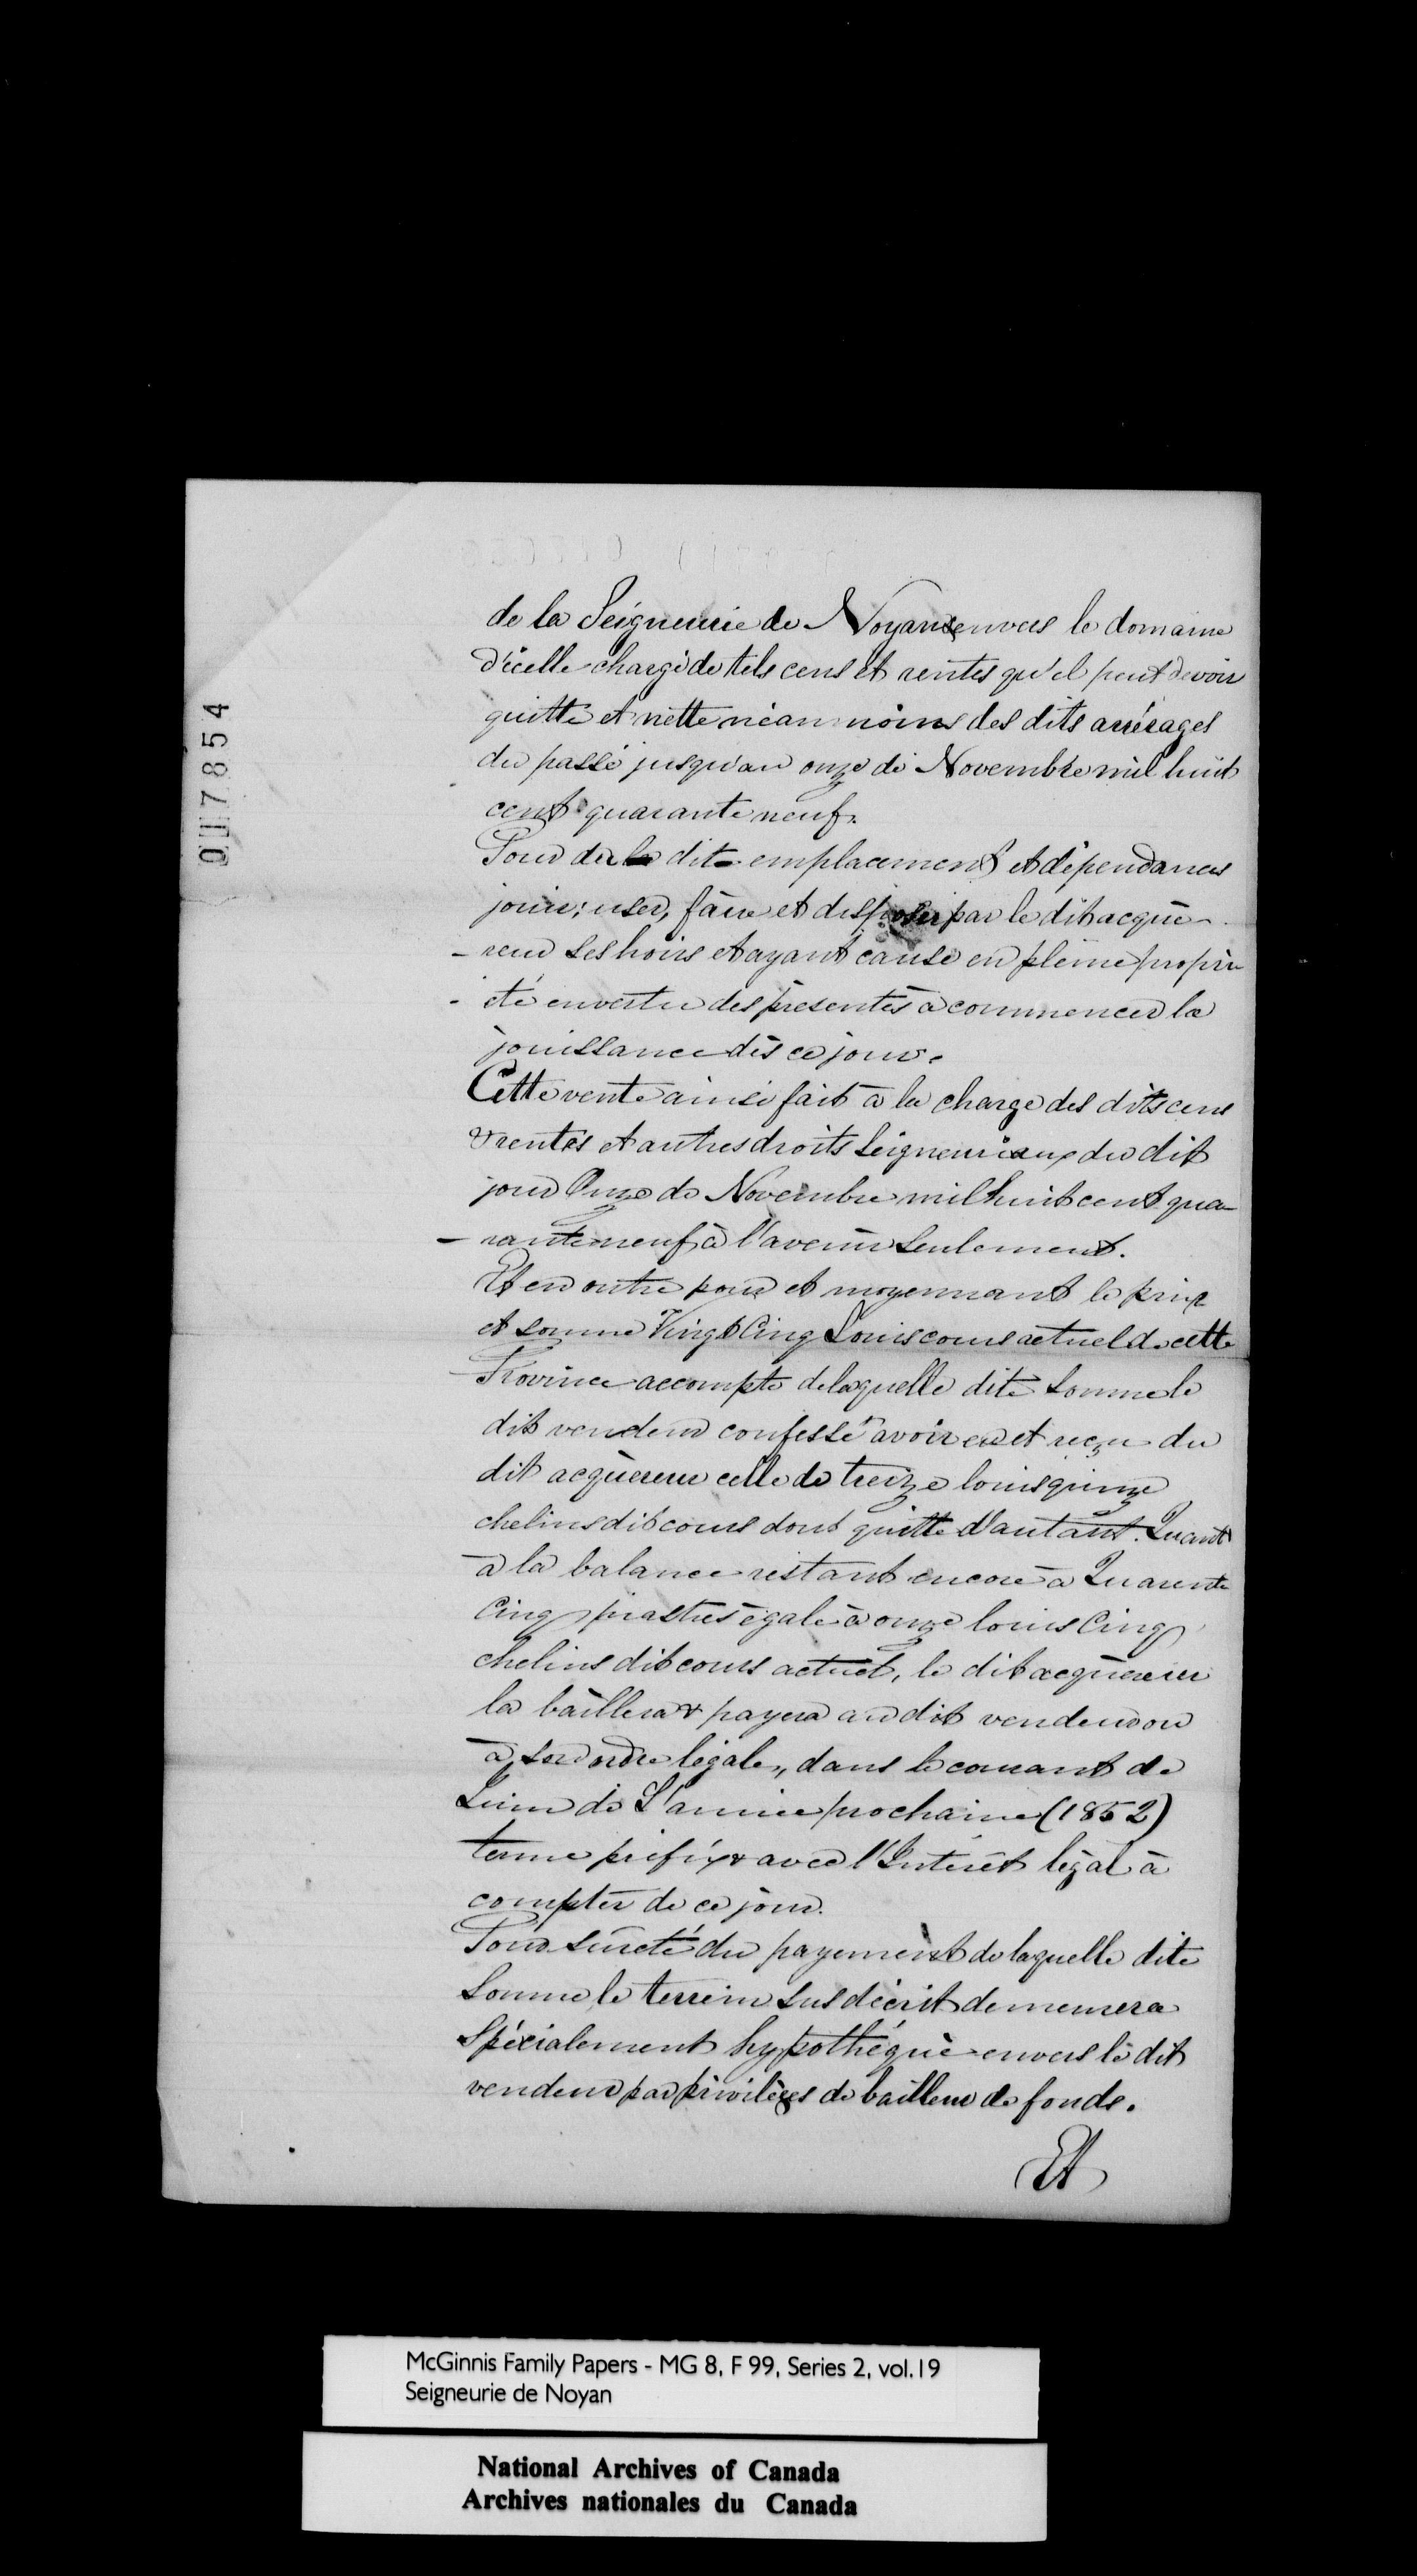 007854
de la Seigneurie de Noyan envers le domaine
d'icelle chargé de tels cens et rentes qu'il peut devoir
quitte et nette néanmoins des dits arrérages
du passé jusqu'au onze de Novembre mil huit
cent quarante neuf.
Pour du dit emplacement et dépendances
jouir, user, faire et disposer par le dit acqué-
-reur ses hoirs et ayant cause en pleine propri
-été en vertu des présentes à commencer la
jouissance dès ce jour.
Cette vente ainsi fait à la charge des dits cens
& rentes et autres droits Seigneuriaux du dit
jour Onze de Novembre mil huit cent qua-
-rante neuf à l'avenir seulement.
Et en outre pour et moyennant le prix
et somme Vingt Cinq Louis cours actuel de cette
Province accompte de laquelle dite somme le
dit vendeur confesse avoir eu et reçu du
dit acquéreur celle de treize louis quinze
chelins dit cours dont quitte d'autant. Quant
à la balance restant encore à Quarente
Cinq piastres égale à onze louis Cinq
chelins dit cours actuel, le dit acquéreur
la baillera & payera au dit vendeur ou
à son ordre légale, dans le courant de
Juin de L'année prochaine (1852)
terme préfix & avec l'Intérêt légal à
compter de ce jour.
Pour sûreté du payement de laquelle dite
somme le terrein sus décrit demeurera
Spécialement hypothéqué envers le dit
vendeur par privilèges de bailleur de fonds.
Et
McGinnis Family Papers - MG 8, F 99, Series 2, vol.19
Seigneurie de Noyan
National Archives of Canada
Archives nationales du Canada